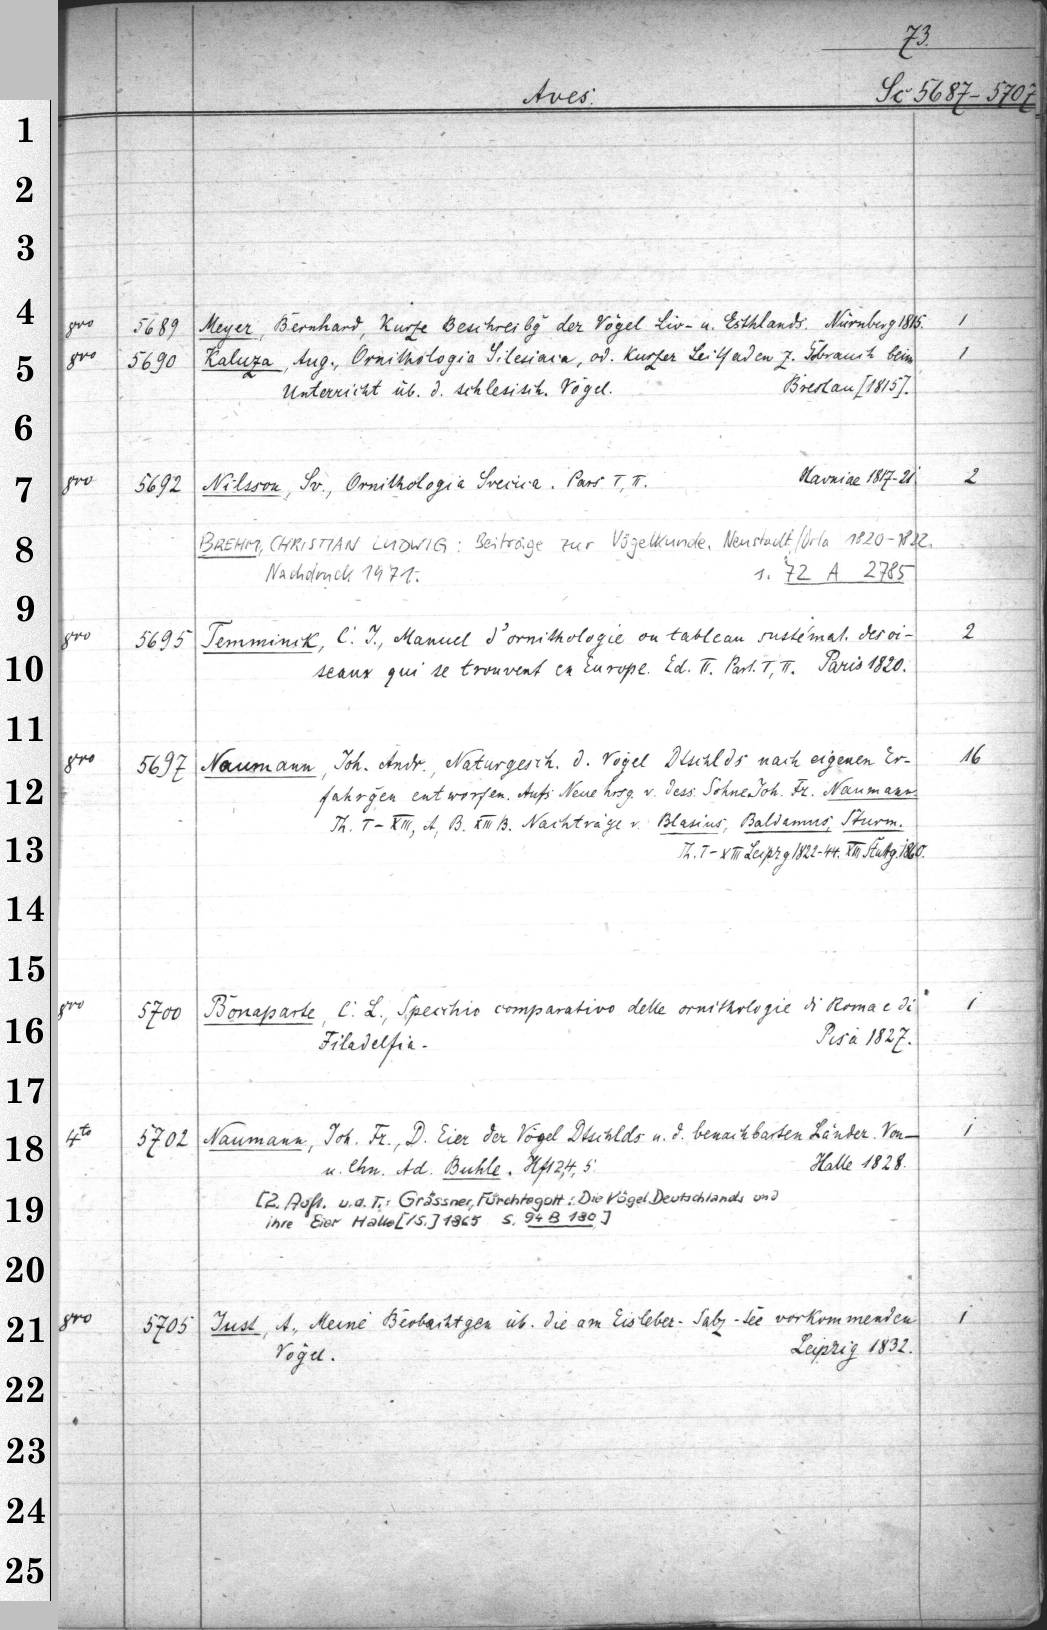 73.
Aves.
Sc 5687-5707
1
2
3
4
8vo 5689 Meyer, Bernhard, Kurze Beschreibg der Vögel Liv- u. Esthlands. Nürnberg 1815. 1
5
8vo 5690 Kaluza, Aug., Ornithologia Silesiaca, od. Kurzer Leitfaden z. Gebrauch beim 1
Unterricht üb. d. schlesisch. Vögel. Breslau [1815].
6
7
8vo 5692 Nilsson, Sv., Ornithologia Svecica. Pars I, II. Havniae 1817-21 2
8
BREHM, CHRISTIAN LUDWIG: Beiträge zur Vögelkunde. Neustadt/Orla 1820-1822.
Nachdruck 1971. s. 72 A 2785
9
8vo 5695 Temminik, C. J., Manuel d'ornithologie ou tableau systémat. des oi- 2
10
seaux qui se trouvent en Europe. Ed. II. Part. I, II. Paris 1820.
11
8vo 5697 Naumann, Joh. Andr., Naturgesch. d. Vögel Dtschlds nach eigenen Er- 16
12
fahrgen entworfen. Aufs Neue hrsg. v. dess. Sohne Joh. Fr. Naumann.
Th. I-XIII, A, B. XIII B. Nachträge v. Blasius, Baldamus, Sturm.
13
Th. I-XII Leipzg 1822-44. XIII Stuttg. 1860.
14
15
8vo 5700 Bonaparte, C. L., Specchio comparativo delle ornithologie di Roma e di 1
16
Filadelfia. Pisa 1827.
17
18
4to 5702 Naumann, Joh. Fr., D. Eier der Vögel Dtschlds u. d. benachbarten Länder. Von 1
u. Chn. Ad. Buhle. Hft 2,4,5 Halle 1828.
19
[2. Aufl. u.d.T.: Grässner, Fürchtegott: Die Vögel Deutschlands und
ihre Eier Halle [1S.] 1865 s. 94 B 180]
20
21
8vo 5705 Just, A., Meine Beobachtgen üb. die am Eisleber-Salz-See vorkommenden 1
Vögel. Leipzig 1832.
22
23
24
25